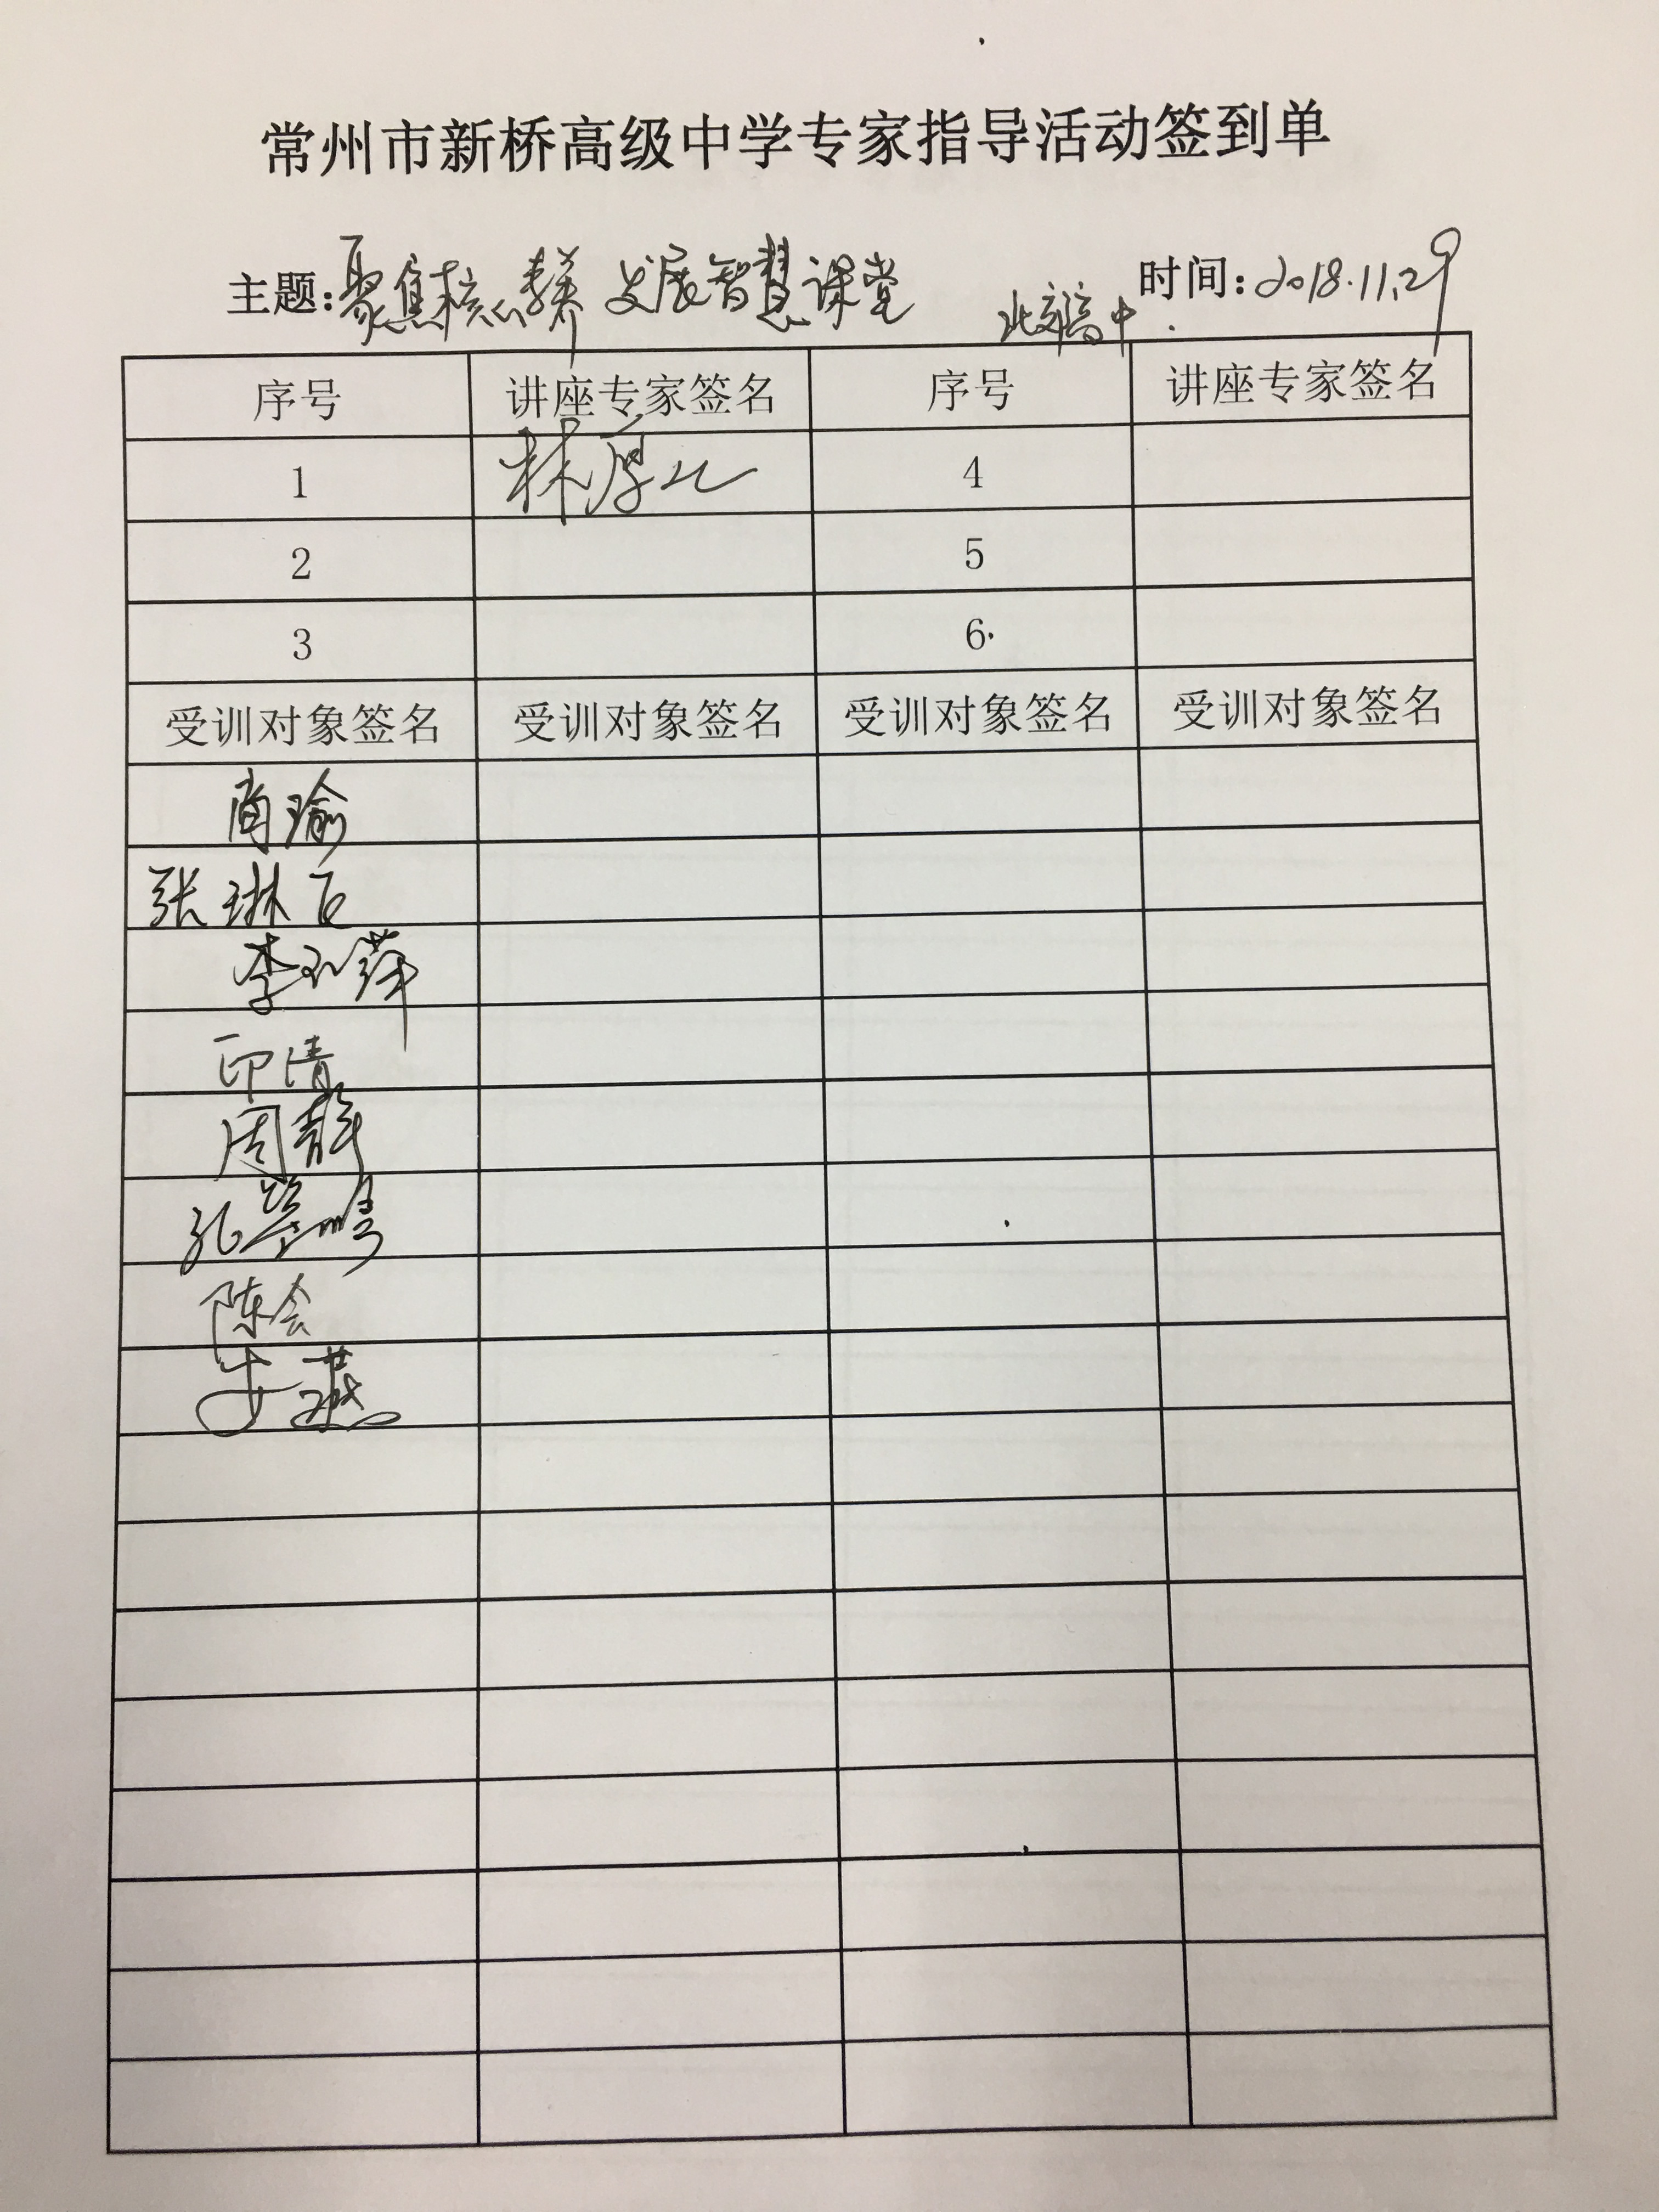 常州市新桥高级中学专家指导活动签到单
主题:聚焦核心素养 发展智慧课堂 北郊高中. 时间:2018.11.29
序号 讲座专家签名 序号 讲座专家签名
1 林厚从 4
2 5
3 6
受训对象签名 受训对象签名 受训对象签名 受训对象签名
商瑜
张琳
李萍
印清
周静
张
陈会
史燕